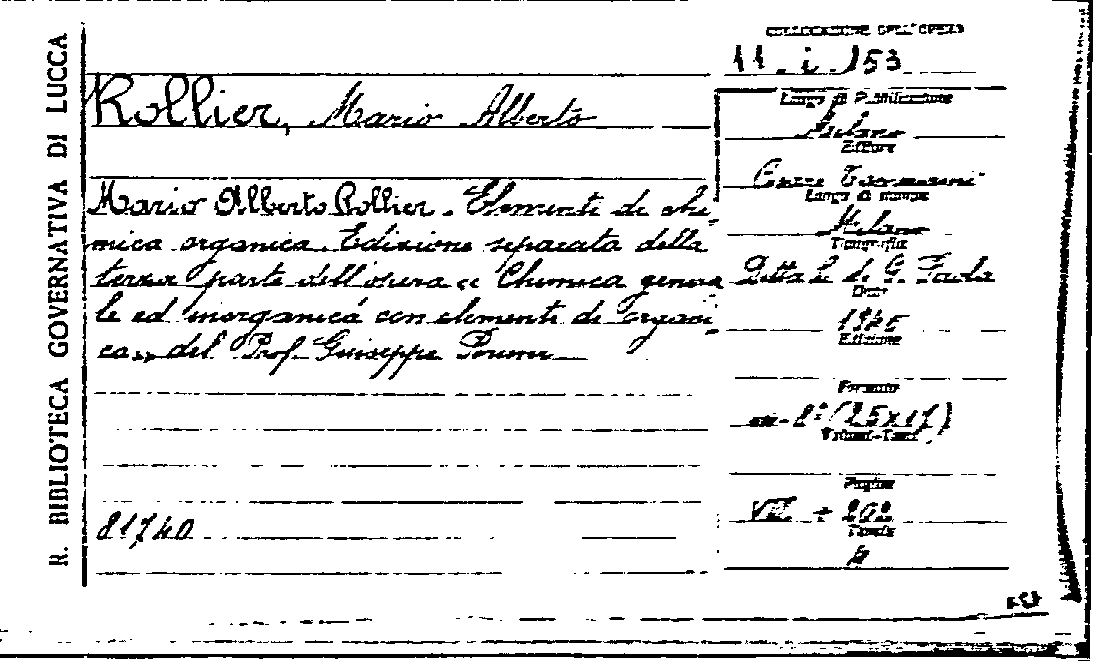 R. BIBLIOTECA GOVERNATIVA DI LUCCA
COLLOCAZIONE DELL'OPERA
11. i. 153
Rollier, Mario Alberto
Mario Alberto Rollier. Elementi di chi-
mica organica. Edizione separata della
terza parte dell'opera « Chimica genera
le ed inorganica con elementi di organi-
ca» del Prof. Giuseppe
81740
Luogo di Pubblicazione
Milano
Editore
Cesare Tamburini
Luogo di stampa
Milano
Tipografia
Ditta L. di G. Pirola
Data
Edizione
Formato
in-8°(25x17)
Volumi-Tomi
Pagine
VIII + 202
Tavole